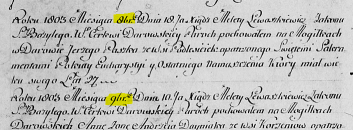 Roku 1803 Miesiąca 8bra Dnia 18 Ja Xiądz Melety Lewaszkiewicz Zakonu
S. Bazylego W Cerkwi Darewskiey Paroch pochowałem na Mogiłkach
w Darewie Jerzego z wsi opatrzonego Świętemi Sakra
mentami Pokuty Eucharystyi y Ostatnego namaszczenia Ktory miał wie
ku swego Lat 27
Roku 1803 Miesiąca 9bra Dnia 10 Ja Xiądz Melety Lewaszkiewicz Zakonu
S. Bazylego W Cerkwi Darewskiey Paroch pochowałem na Mogiłkach
Darewskich Annę Żonę ze wsi opatrzoną